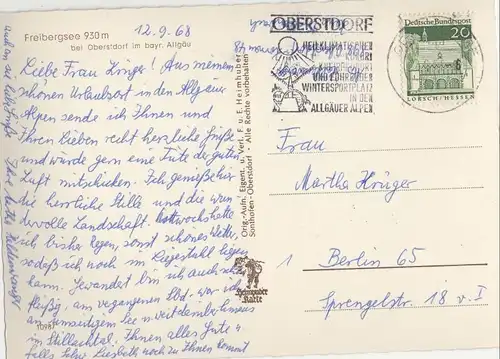 Freibergsee 930 m
bei Oberstdorf im bayr. Allgäu
12.9.68
Liebe Frau Krüger! Aus meinem
schönen Urlaubsort in den Allgäuer
Alpen sende ich Ihnen und
Ihren Lieben recht herzliche Grüße
und würde gern eine Tüte der guten
Luft mitschicken. Ich genieße hier
die herrliche Stille und die wun
dervolle Landschaft. hatte
ich bisher Regen, sonst schönes Wetter,
sodaß ich noch im Liegestuhl liegen
kann. Gewandert bin ich auch schon
fleißig, am vergangenen war ich
am umseitigen See u. weit darüber hinaus
im Stillachtal. Ihnen alles Gute u.
falls Liesbeth noch zu Ihnen kommt
Orig.-Aufn., Eigent. u. Verl. F. u. E. Heimhuber
Sonthofen-Oberstdorf Alle Rechte vorbehalten
Heimhuber
Karte
OBERSTDORF
HEILKLIMATISCHER
KURORT
UND FÜHRENDER
WINTERSPORTPLATZ
IN DEN
ALLGÄUER ALPEN
Deutsche Bundespost
20
LORSCH/HESSEN
Frau
Martha Krüger
1 Berlin 65
Sprengelstr. 18 v. I